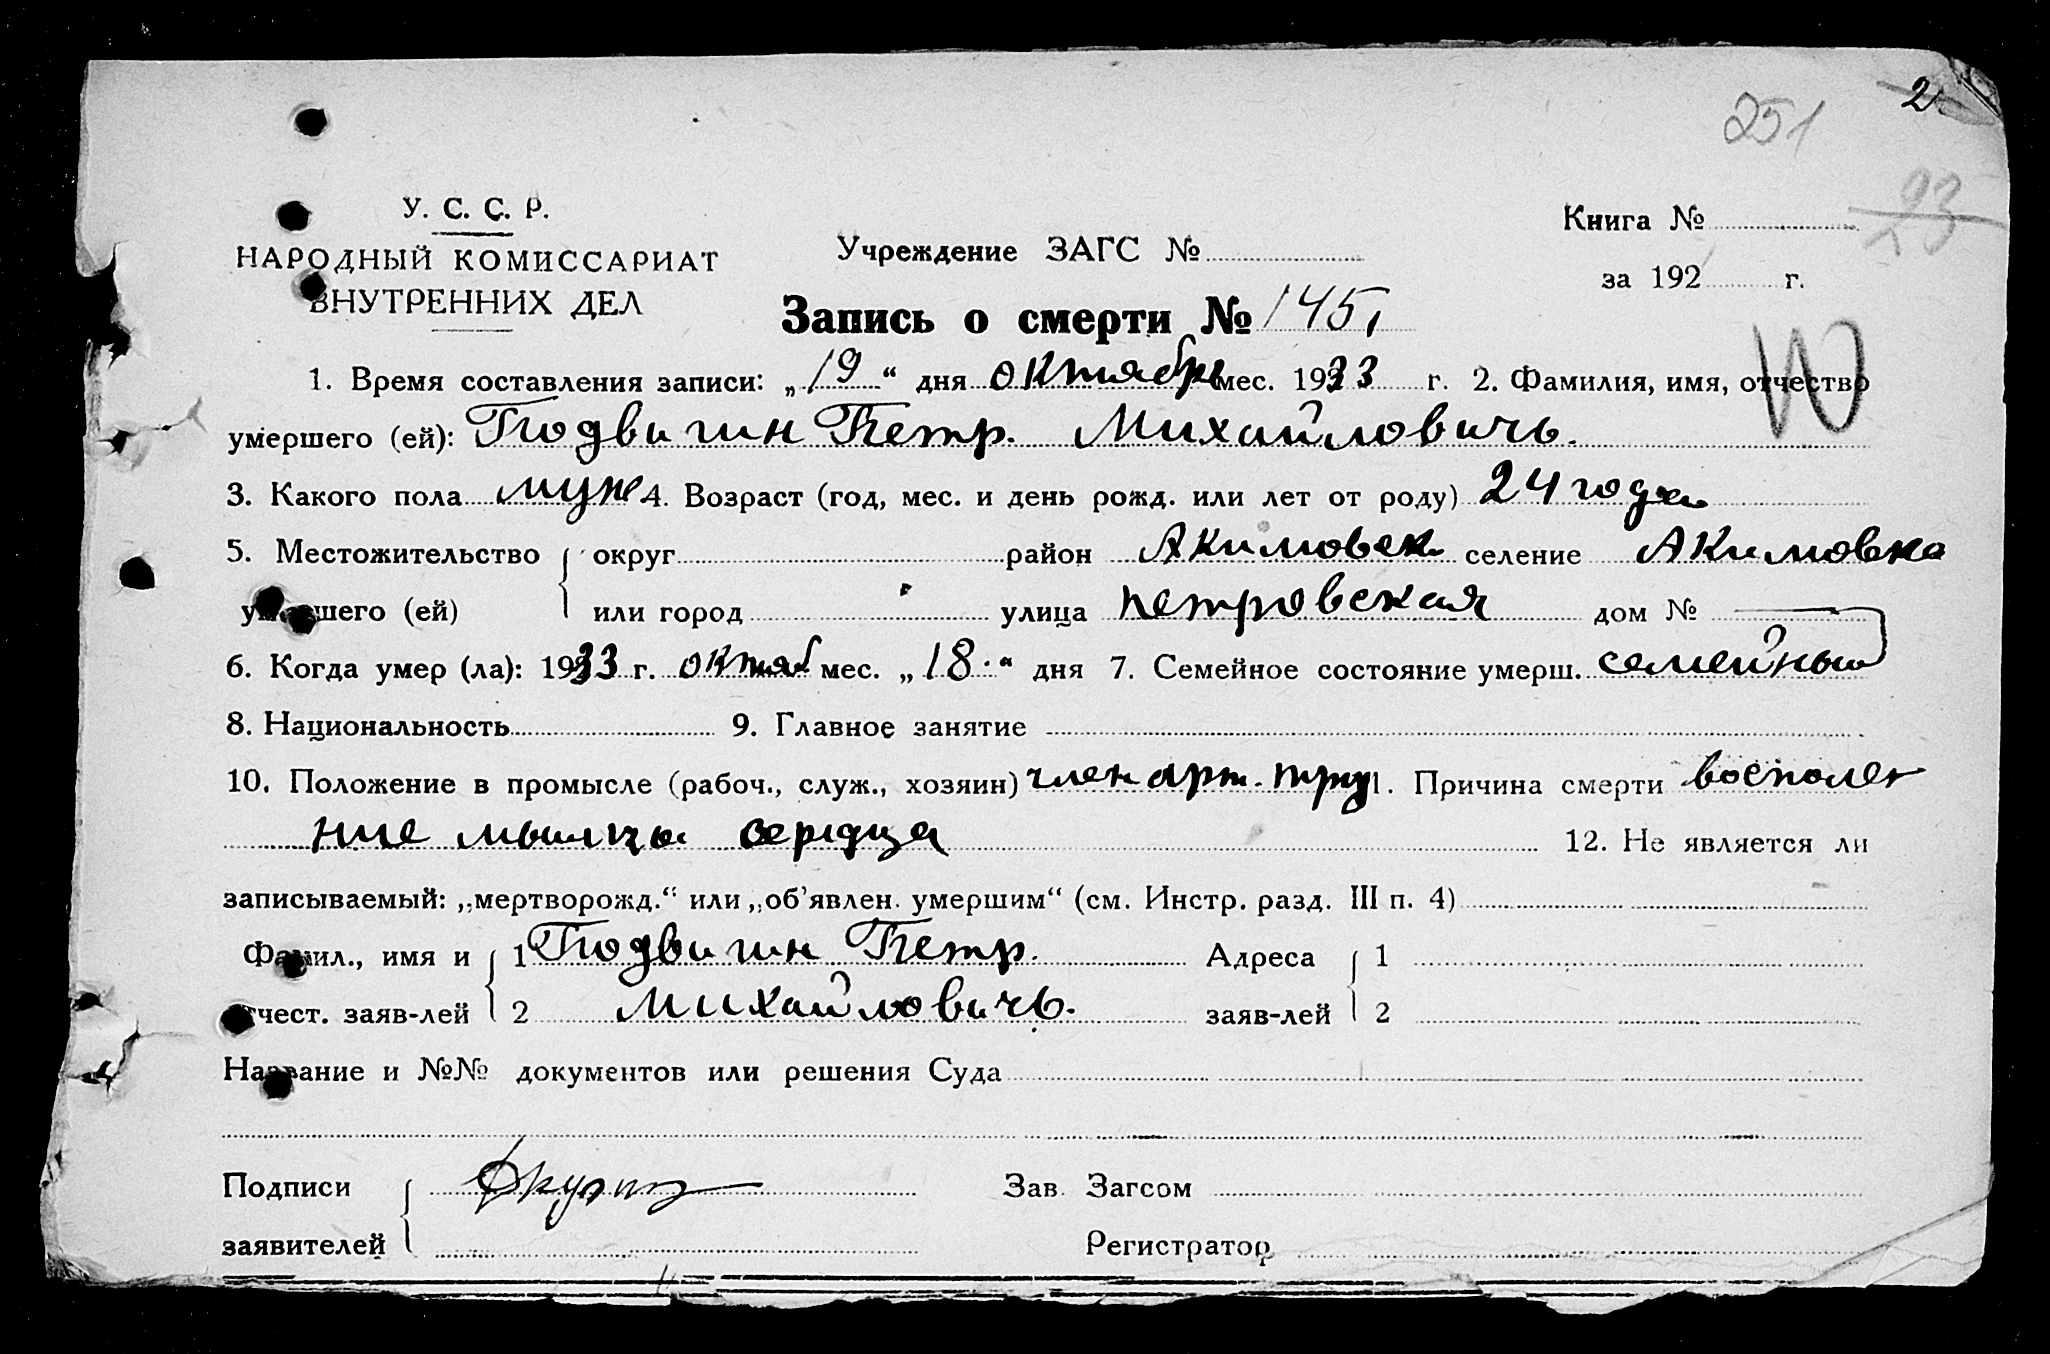 2
251
23
У. С. С. Р.
НАРОДНЫЙ КОМИССАРИАТ
ВНУТРЕННИХ ДЕЛ
Учреждение ЗАГС №
Книга №
за 192 г.
Запись о смерти № 145,
1. Время составления записи: „19“ дня октябрь мес. 1933 г. 2. Фамилия, имя, отчество
умершего (ей): Подвигин Петр. Михайловичь.
3. Какого пола муж 4. Возраст (год, мес. и день рожд. или лет от роду) 24 года
5. Местожительство округ район Акимовск. селение Акимовка
умершего (ей) или город улица петровская дом № —
6. Когда умер (ла): 1933 г. октяб мес. „18.“ дня 7. Семейное состояние умерш. семейный
8. Национальность 9. Главное занятие
10. Положение в промысле (рабоч., служ., хозяин) член арт. труд 11. Причина смерти восполе
ние мышцы сердца 12. Не является ли
записываемый: „мертворожд.“ или „об'явлен. умершим“ (см. Инстр. разд. III п. 4)
Фамил., имя и 1 Подвигин Петр. Адреса 1
отчест. заяв-лей 2 Михайловичь. заяв-лей 2
Название и №№ документов или решения Суда
Подписи Зав. Загсом
заявителей Регистратор